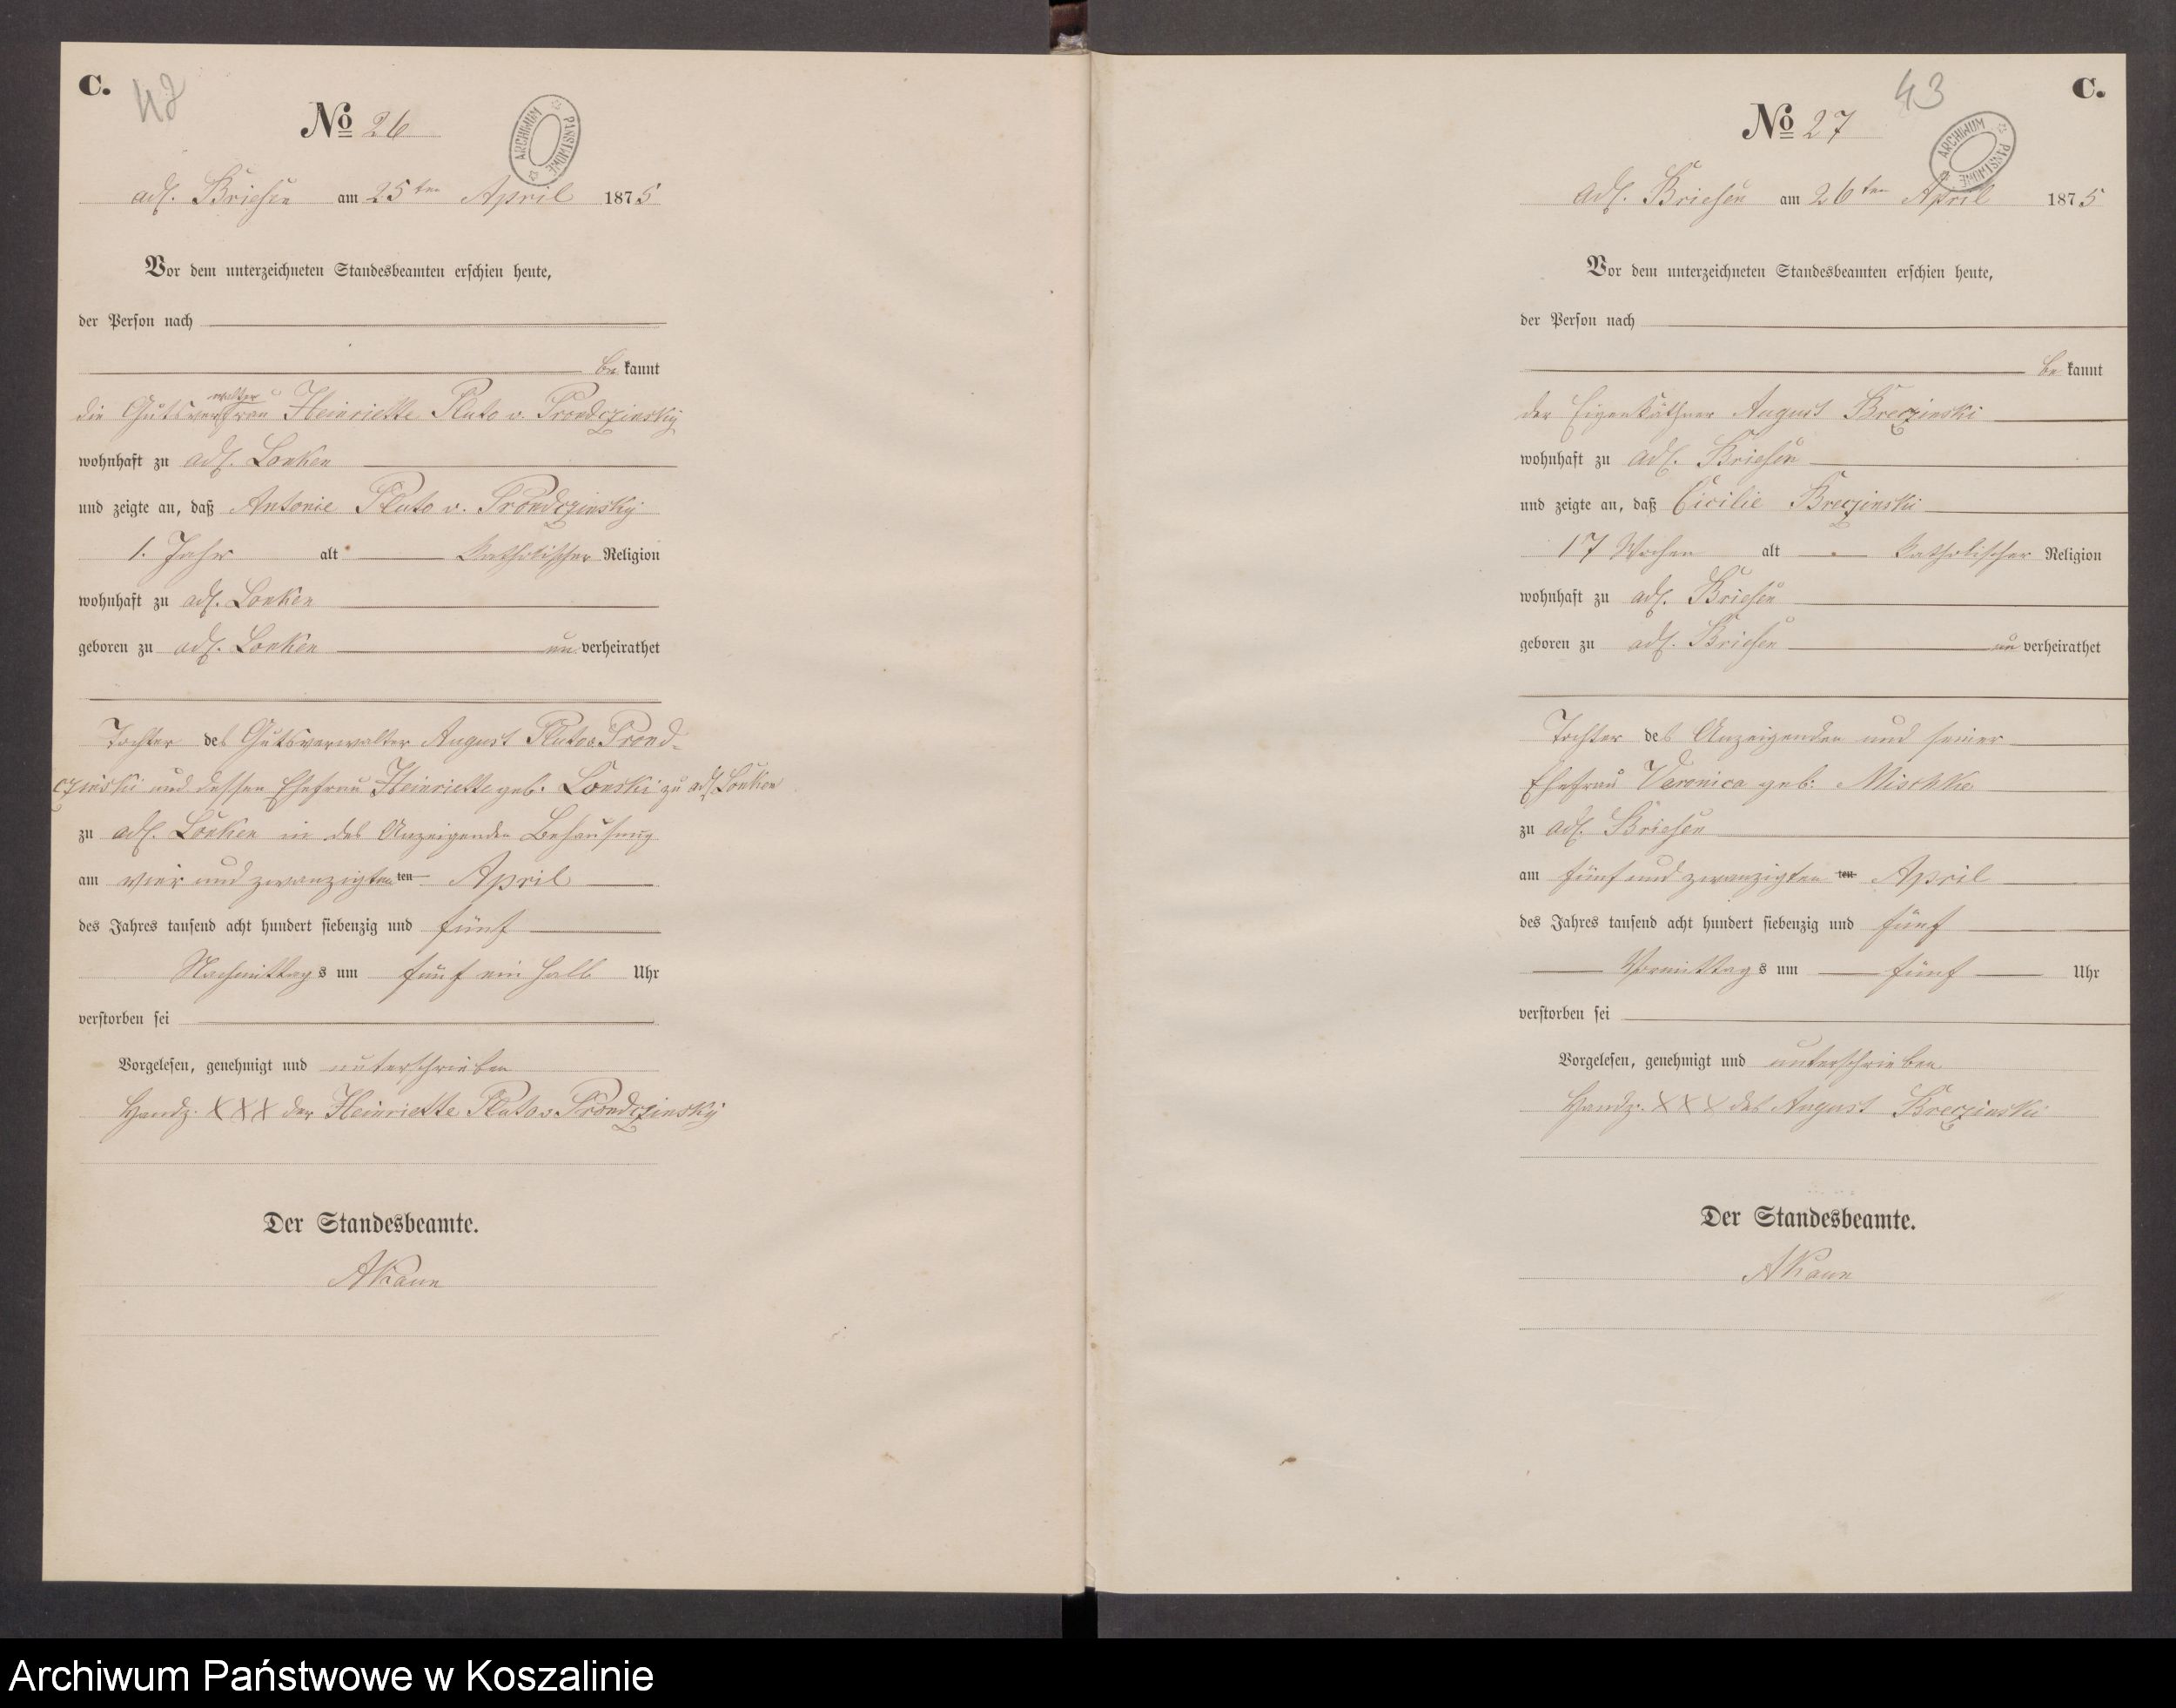 C.
42
No 26
ARCHIWUM PAŃSTWOWE
adl. Briesen am 25ten April 1875
Vor dem unterzeichneten Standesbeamten erschien heute,
der Person nach
bekannt
die Gutsverwalterfrau Henriette Pluto v. Prondczinsky
wohnhaft zu adl. Lonken
und zeigte an, daß Antonie Pluto v. Prondczinsky
1. Jahr alt katholischer Religion
wohnhaft zu adl. Lonken
geboren zu adl. Lonken unverheirathet
Tochter des Gutsverwalter August Pluto v. Prond-
czinski und dessen Ehefrau Heinriette geb. Lonski zu adl. Lonken
zu adl. Lonken in des Anzeigenden Behausung
am vier und zwanzigten ten April
des Jahres tausend acht hundert siebenzig und fünf
Nachmittags um fünf ein halb Uhr
verstorben sei
Vorgelesen, genehmigt und unterschrieben
Handz. XXX der Heinriette Pluto v. Prondczinsky
Der Standesbeamte.
AKaun
C.
43
No 27
ARCHIWUM PAŃSTWOWE
Adl. Briesen am 26ten April 1875
Vor dem unterzeichneten Standesbeamten erschien heute,
der Person nach
bekannt
der Eigenkäthner August Breczinski
wohnhaft zu adl. Briesen
und zeigte an, daß Cicilie Breczinski
17 Wochen alt katholischer Religion
wohnhaft zu adl. Briesen
geboren zu adl. Briesen unverheirathet
Tochter des Anzeigenden und seiner
Ehefrau Veronica geb: Mischke
zu adl. Briesen
am fünf und zwanzigten ten April
des Jahres tausend acht hundert siebenzig und fünf
Vormittags um fünf Uhr
verstorben sei
Vorgelesen, genehmigt und unterschrieben
Handz. XXX des August Breczinski
Der Standesbeamte.
AKaun
Archiwum Państwowe w Koszalinie